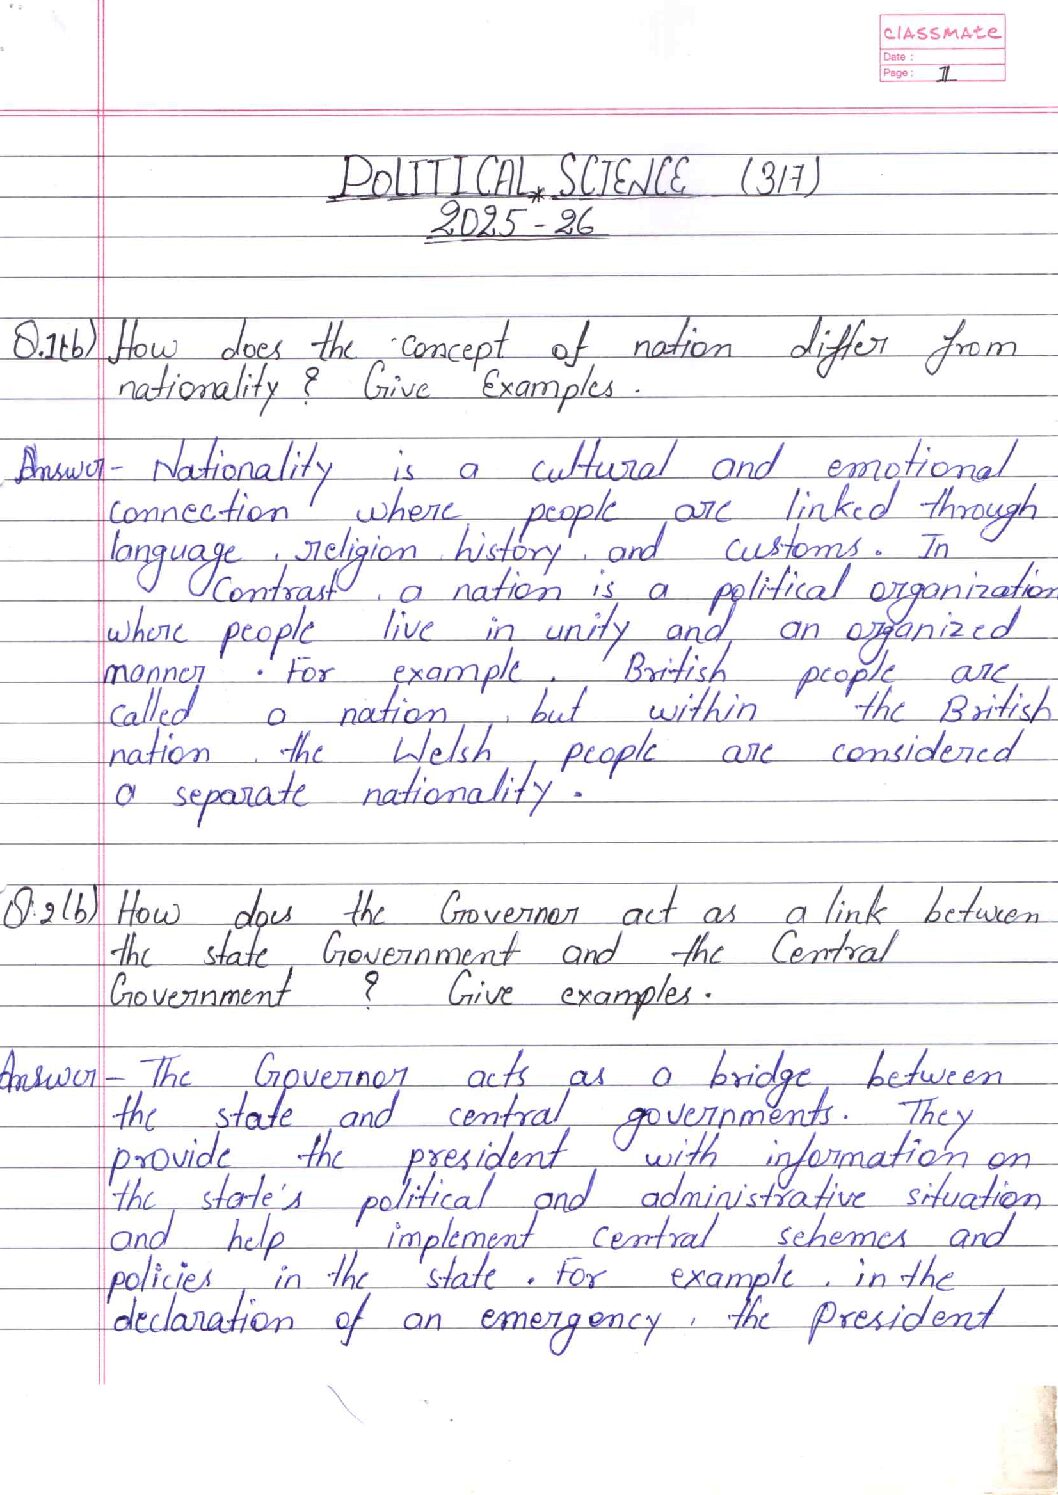 CLASSMATE
Date :
Page : 1
POLITICAL SCIENCE (317)
2025-26
Q.1(b) How does the concept of nation differ from
nationality ? Give Examples.
Answer- Nationality is a cultural and emotional
connection where people are linked through
language, religion, history, and customs. In
Contrast, a nation is a political organization
where people live in unity and an organized
manner. For example, British people are
called a nation, but within the British
nation, the Welsh people are considered
a separate nationality.
Q.2(b) How does the Governor act as a link between
the state Government and the Central
Government ? Give examples.
Answer- The Governor acts as a bridge between
the state and central governments. They
provide the president with information on
the state's political and administrative situation
and help implement central schemes and
policies in the state. For example, in the
declaration of an emergency, the President